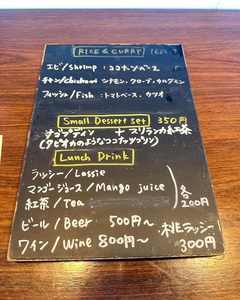 RICE & CURRY
エビ/shrimp : ココナッツベース
チキン/Chicken シナモン、クローブ、カルダモン
フィッシュ/Fish : トマトベース、カツオ
Small Dessert set 350円
+ スリランカ紅茶
(タピオカのようなココナッツプリン)
Lunch Drink
ラッシー/Lassie
マンゴージュース/Mango juice
紅茶/Tea
各200円
ビール/Beer 500円〜
ワイン/Wine 800円〜
桃ラッシー
300円